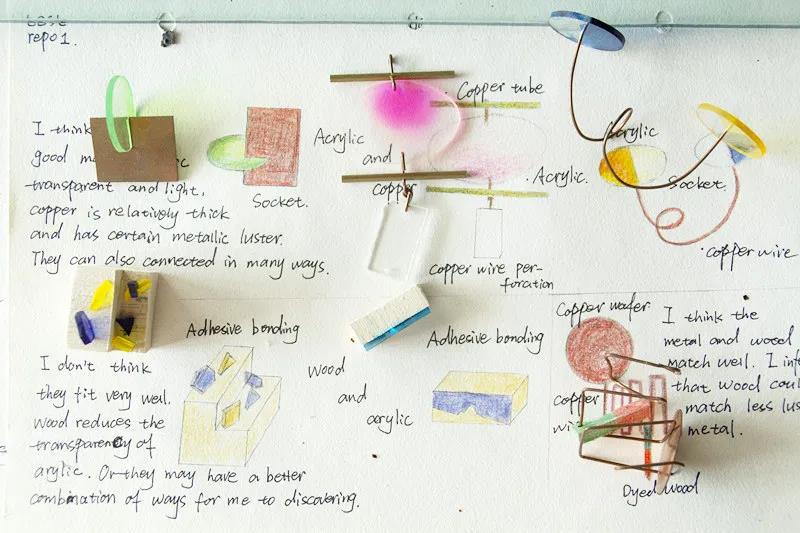 repo 1.
I think
good
transparent and light,
copper is relatively thick
and has certain metallic luster.
They can also connected in many ways.
Socket.
Acrylic
and
copper
Copper tube
Acrylic.
copper wire per-
foration
Acrylic
Socket.
copper wire
I don't think
they fit very well.
Wood reduces the
transparency of
arylic. Or they may have a better
combination of ways for me to discovering.
Adhesive bonding
Wood
and
acrylic
Adhesive bonding
Copper wafer
copper
Dyed wood
I think the
metal and wood
match well. I
that wood
match less
metal.